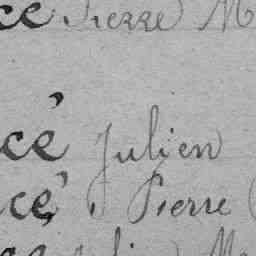 cé Pierre M
cé Julien
cé, Pierre